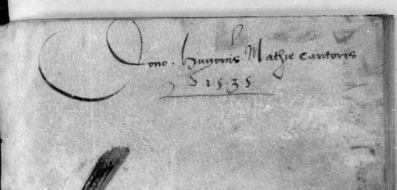 Dono . hugonis Mathie cantoris
1535